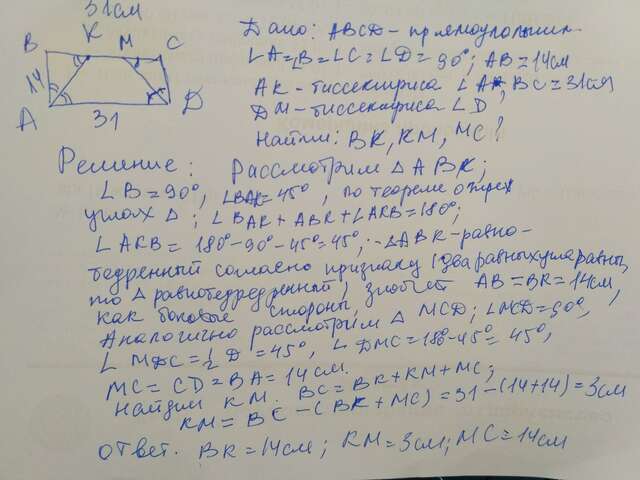 31см
B K M C
14
A 31 D
Дано: ABCD - прямоугольник
∠A=∠B=∠C=∠D=90°; AB=14см
AK - биссектриса ∠A, BC=31см
DM - биссектриса ∠D
Найти: BK, KM, MC?
Решение: Рассмотрим △ABK;
∠B=90°, ∠BAK=45°, по теореме о трех
углах △; ∠BAK+ABK+∠AKB=180°;
∠AKB=180°-90°-45°=45°, △ABK-равно-
бедренный согласно признаку (два равных угла равны,
то △ равнобедренный, значит AB=BK=14см,
как боковые стороны,
Аналогично рассмотрим △MCD; ∠MCD=90°,
∠MDC=½D=45°, ∠DMC=180-45=45°,
MC=CD=BA=14см.
Найдим KM. BC=BK+KM+MC;
KM=BC-(BK+MC)=31-(14+14)=3см
Ответ. BK=14см; KM=3см; MC=14см